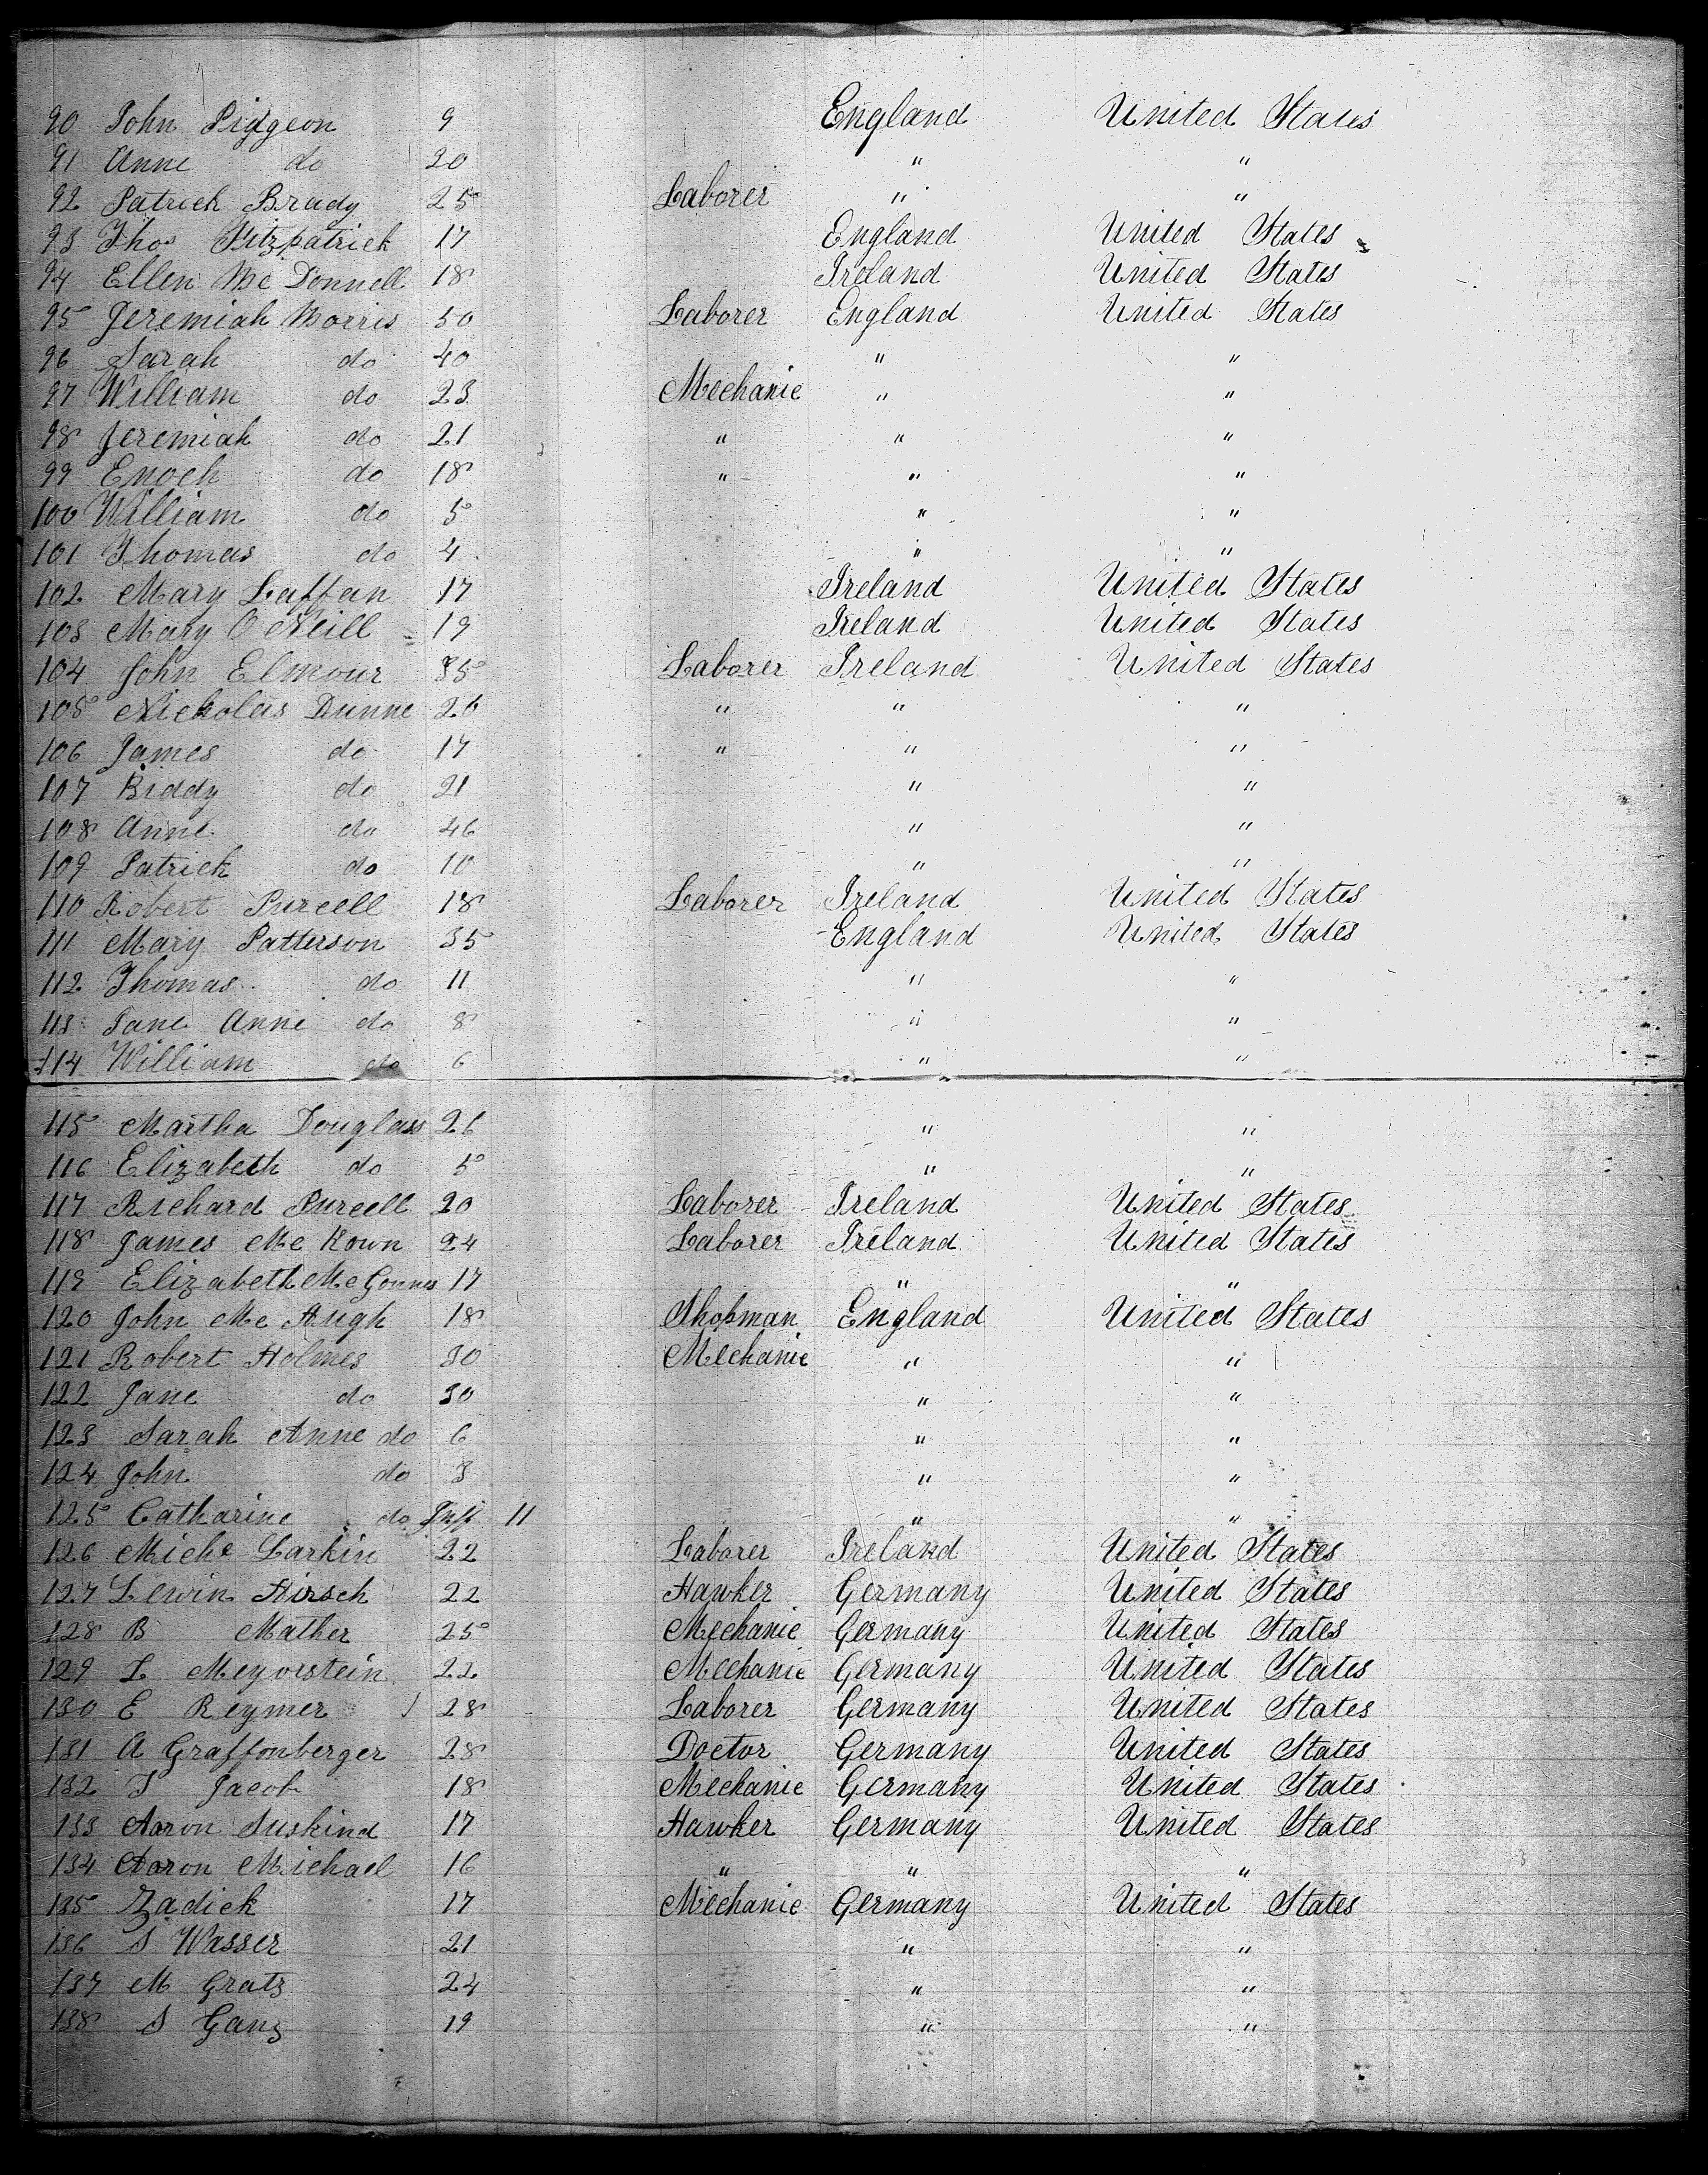 90 John Pidgeon 9 England United States
91 Anne do 20 " "
92 Patrick Brady 25 Laborer " "
93 Thos Fitzpatrick 17 England United States
94 Ellen Mc Donnell 18 Ireland United States
95 Jeremiah Morris 50 Laborer England United States
96 Sarah do 40 " "
97 William do 23 Mechanic " "
98 Jeremiah do 21 " " "
99 Enoch do 18 " " "
100 William do 5 " "
101 Thomas do 4 " "
102 Mary Laffan 17 Ireland United States
103 Mary O Neill 19 Ireland United States
104 John Elmour 35 Laborer Ireland United States
105 Nickolas Dunne 26 " " "
106 James do 17 " " "
107 Biddy do 21 " "
108 Anne do 46 " "
109 Patrick do 10 " "
110 Robert Purcell 18 Laborer Ireland United States
111 Mary Patterson 35 England United States
112 Thomas do 11 " "
113 Jane Anne do 8 " "
114 William do 6 " "
115 Martha Douglass 26 " "
116 Elizabeth do 5 " "
117 Richard Purcell 20 Laborer Ireland United States
118 James Mc Kown 24 Laborer Ireland United States
119 Elizabeth Mc 17 " "
120 John Mc Hugh 18 Shopman England United States
121 Robert Holmes 30 Mechanic " "
122 Jane do 30 " "
123 Sarah Anne do 6 " "
124 John do 3 " "
125 Catharine do Inft 11 " "
126 Miche Larkin 22 Laborer Ireland United States
127 Lewin Hirsch 22 Hawker Germany United States
128 B Mather 25 Mechanic Germany United States
129 L Meyorstein 22 Mechanic Germany United States
130 E Reymer 28 Laborer Germany United States
131 A Graffonberger 28 Doctor Germany United States
132 Jacob 18 Mechanic Germany United States
133 Aaron Suskind 17 Hawker Germany United States
134 Aaron Michael 16 " " "
135 Zadick 17 Mechanic Germany United States
136 S Wasser 21 " "
137 M Gratz 24 " "
138 S Ganz 19 " "